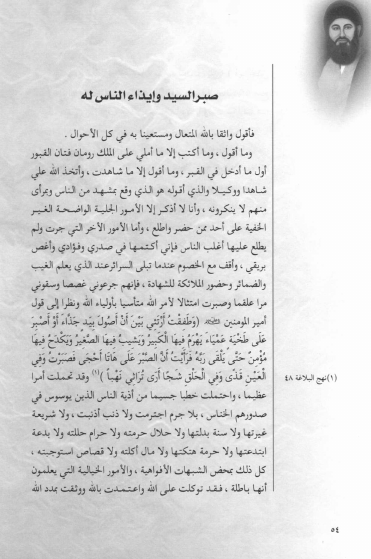 صبر السيد وإيذاء الناس له
فأقول واثقا بالله المتعال ومستعينا به في كل الأحوال .
وما أقول ، وما أكتب إلا ما أملي على الملك رومان فتان القبور
أول ما أدخل في القبر ، وما أقول إلا ما شاهدت ، وأتخذ الله علي
شاهدا ووكيلا والذي أقوله هو الذي وقع بمشهد من الناس وبمرأى
منهم لا ينكرونه ، وأنا لا أذكر إلا الأمور الجلية الواضحة الغير
الخفية على أحد ممن حضر واطلع ، وأما الأمور الأخر التي جرت ولم
يطلع عليها أغلب الناس فإني أكتمها في صدري وفؤادي وأغص
بريقي ، وأقف مع الخصوم عندما تبلى السرائر عند الذي يعلم الغيب
والضمائر وحضور الملائكة للشهادة ، فإنهم جرعوني غصصا وسقوني
مرا علقما وصبرت امتثالا لأمر الله متأسيا بأولياء الله ونظرا إلى قول
أمير المؤمنين (وَطَفِقْتُ أَرْتَئِي بَيْنَ أَنْ أَصُولَ بِيَدٍ جَذَّاءَ أَوْ أَصْبِرَ
عَلَى طَخْيَةٍ عَمْيَاءَ يَهْرَمُ فِيهَا الْكَبِيرُ وَيَشِيبُ فِيهَا الصَّغِيرُ وَيَكْدَحُ فِيهَا
مُؤْمِنٌ حَتَّى يَلْقَى رَبَّهُ فَرَأَيْتُ أَنَّ الصَّبْرَ عَلَى هَاتَا أَحْجَى فَصَبَرْتُ وَفِي
الْعَيْنِ قَذًى وَفِي الْحَلْقِ شَجًا أَرَى تُرَاثِي نَهْباً )(١) وقد تحملت أمرا
عظيما ، واحتملت خطبا جسيما من أذية الناس الذين يوسوس في
صدورهم الخناس ، بلا جرم اجترمت ولا ذنب أذنبت ، ولا شريعة
غيرتها ولا سنة بدلتها ولا حلال حرمته ولا حرام حللته ولا بدعة
ابتدعتها ولا حرمة هتكتها ولا مال أكلته ولا قصاص استوجبته ،
كل ذلك بمحض الشبهات الأفواهية ، والأمور الخيالية التي يعلمون
أنها باطلة ، فقد توكلت على الله واعتمدت بالله ووثقت بمدد الله
(١) نهج البلاغة ٤٨
٥٤